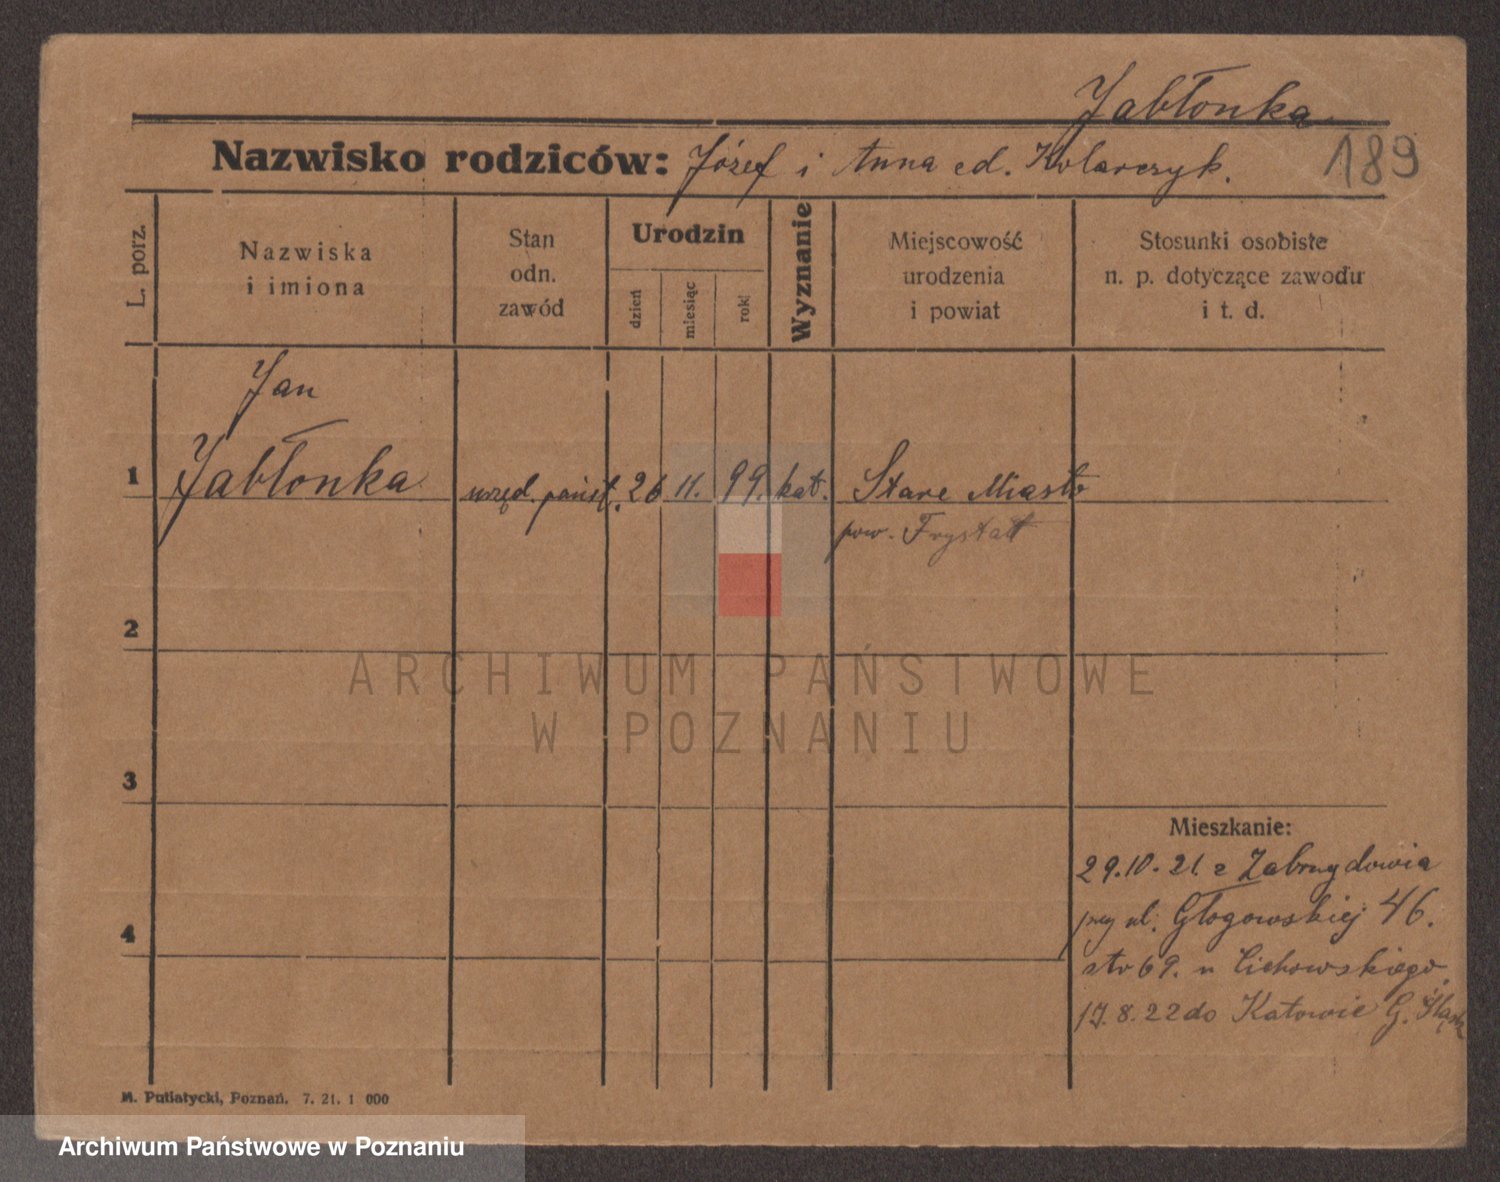 Jabłonka
Nazwisko rodziców: Józef i Anna cd. Kolarczyk.
189
L. porz.
Nazwiska
i imiona
Stan
odn.
zawód
Urodzin
dzień
miesiąc
rok
Wyznanie
Miejscowość
urodzenia
i powiat
Stosunki osobiste
n. p. dotyczące zawodu
i t. d.
Jan
1 Jabłonka urzęd. państ. 26 11. 99. kat. Stare Miasto
pow. Frysztat
2
ARCHIWUM PAŃSTWOWE
W POZNANIU
3
Mieszkanie:
29.10.21. z
przy ul. Głogowskiej 46.
4
69. u Cichowskiego
17.8.22 do Katowic G. Śląsk
M. Putiatycki, Poznań. 7. 21. 1 000
Archiwum Państwowe w Poznaniu